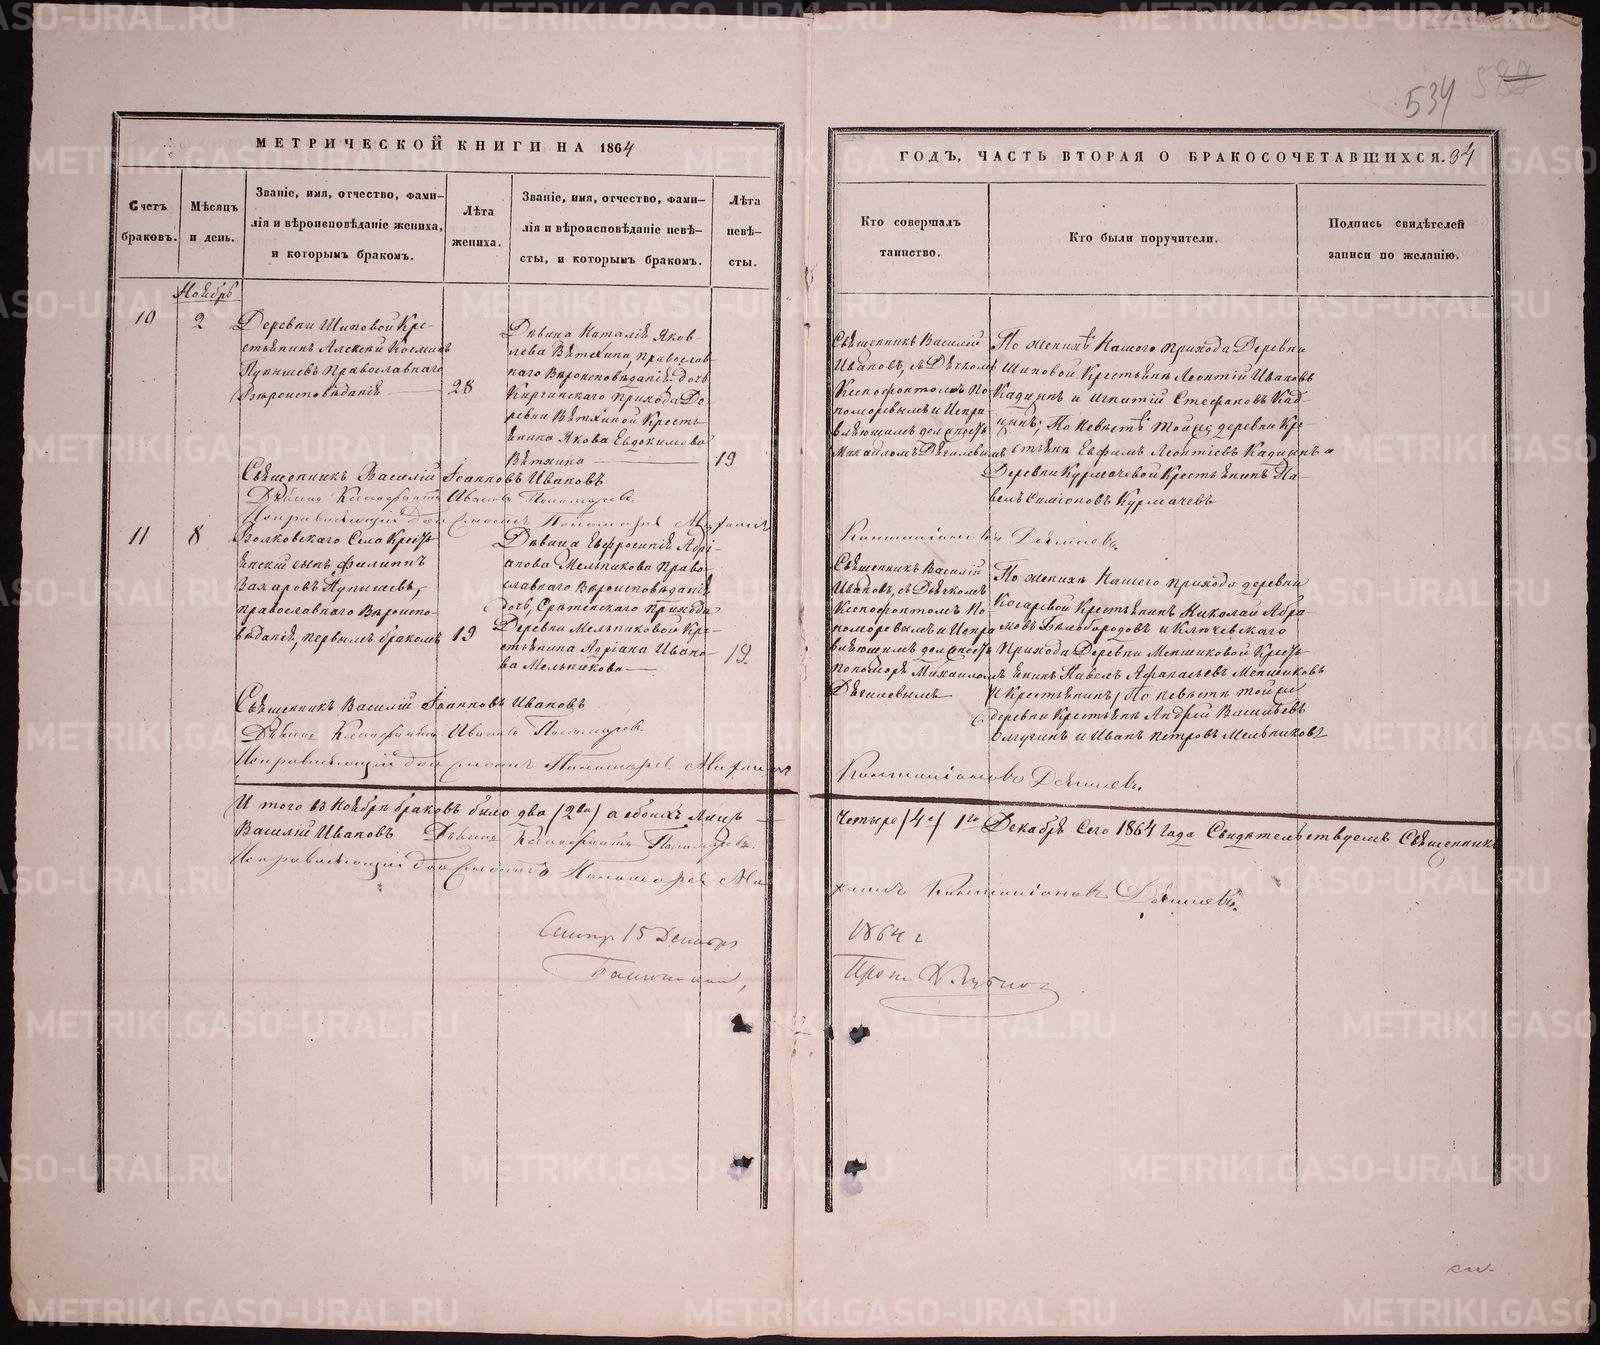 534
МЕТРИЧЕСКОЙ КНИГИ НА 1864
ГОДЪ, ЧАСТЬ ВТОРАЯ О БРАКОСОЧЕТАВШИХСЯ. 34
Счетъ браковъ.
Мѣсяцъ и день.
Званіе, имя, отчество, фами-
лія и вѣроисповѣданіе жениха,
и которымъ бракомъ.
Лѣта
жениха.
Званіе, имя, отчество, фами-
лія и вѣроисповѣданіе невѣ-
сты, и которымъ бракомъ.
Лѣта
невѣ-
сты.
Кто совершалъ
таинство.
Кто были поручители.
Подпись свидѣтелей
записи по желанію.
Ноябрь
10
2
Деревни Шиповой Кре-
стьянинъ Алексѣй Косминъ
Пупышевъ Православнаго
Вѣроисповѣданія
28
Дѣвица Наталія Яков-
лева Вяткина, православ-
наго Вѣроисповѣданія дочь
Киргинскаго прихода Де-
ревни Вяткиной Кресть-
янина Якова Евдокимова
Вяткина
19
Священникъ Василій
Ивановъ, съ Дьячкомъ
Ксенофонтомъ По-
номаревымъ и Испра-
вляющимъ должность
Михаиломъ Дягилевымъ
По женихѣ Нашего прихода Деревни
Шиповой Крестьяне Леонтій Ивановъ
Кадцынъ и Игнатій Стефановъ Кад-
цынъ; По Невѣстѣ той же деревни Кре-
стьяне Евфимъ Леонтіевъ Кадцынъ и
Деревни Курмачевой Крестьянинъ Па-
велъ Симеоновъ Курмачевъ
Священникъ Василій Іоанновъ Ивановъ
Дьячекъ Ксенофонтъ Ивановъ Пономаревъ
Исправляющій должность Пономаря Михаилъ
Контиліановъ Дягилевъ.
11
8
Волковскаго Села Кресть-
янскій сынъ Филиппъ
Захаровъ Пупышевъ,
православнаго Вѣроиспо-
вѣданія, первымъ бракомъ
19
Дѣвица Евфросинія Адрі-
анова Мельникова право-
славнаго Вѣроисповѣданія
дочь, Срѣтенскаго прихода
Деревни Мельниковой Кре-
стьянина Адріана Ивано-
ва Мельникова
19.
Священникъ Василій
Ивановъ, съ Дьячкомъ
Ксенофонтомъ По-
номаревымъ и Испра-
вляющимъ должность
пономаря Михаиломъ
Дягилевымъ
По женихѣ Нашего прихода деревни
Косаревой Крестьянинъ Николай Абра-
мовъ Бѣлобородовъ и Ключевскаго
прихода Деревни Меншиковой Кресть-
янинъ Павелъ Афанасьевъ Меншиковъ
и Крестьянинъ; По невѣстѣ той же
деревни Крестьяне Андрей Васильевъ
и Иванъ Петровъ Мельниковъ
Священникъ Василій Іоанновъ Ивановъ
Дьячекъ Ксенофонтъ Ивановъ Пономаревъ
Исправляющій должность Пономаря Михаилъ
Контиліановъ Дягилевъ.
Итого въ Ноябрѣ браковъ было два /2ва/ а обоихъ лицъ
Четыре /4е/ 1го Декабря сего 1864 года Свидѣтельствуемъ Священникъ
Василій Ивановъ Дьячекъ Ксенофонтъ Пономаревъ.
Исправляющій должность Пономаря Ми-
хаилъ Контиліановъ Дягилевъ.
15 Декабря
1864 г